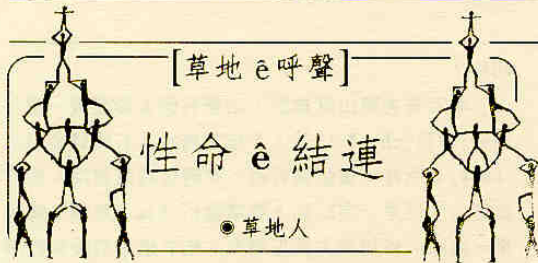 [草地 ê 呼聲]
性命 ê 結連
◉草地人